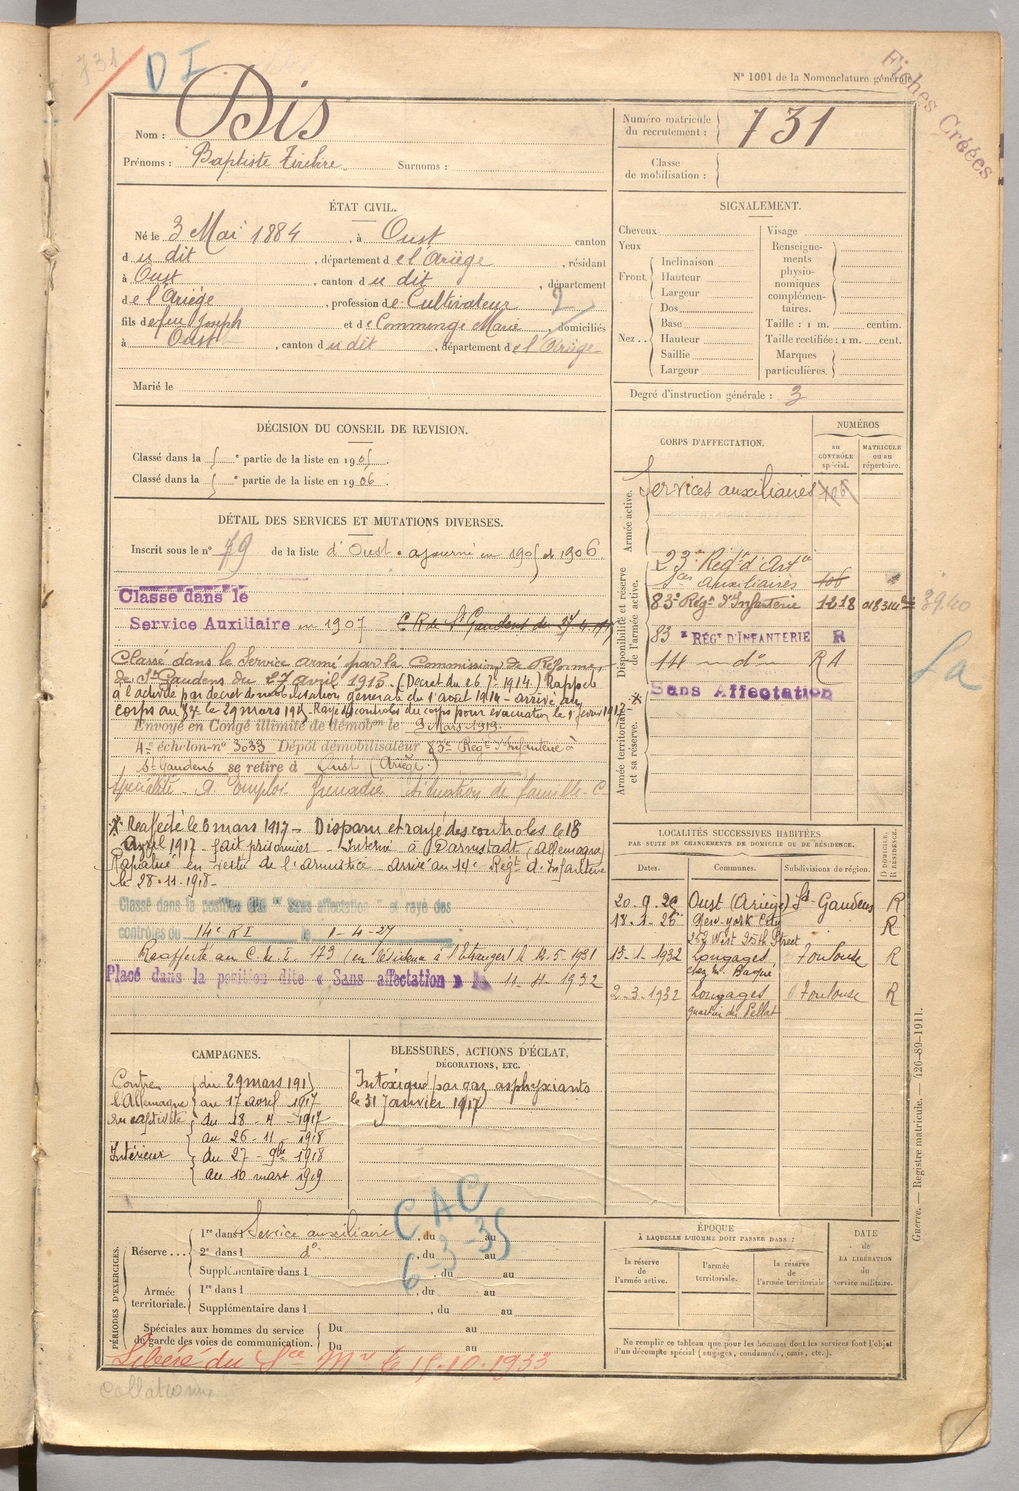 731
D I
N° 1001 de la Nomenclature générale.
Fiches Créées
Nom : Dis
Prénoms : Baptiste Surnoms :
Numéro matricule du recrutement : 731
Classe de mobilisation :
ÉTAT CIVIL.
Né le 3 Mai 1884, à Oust canton
du dit, département de l'Ariège, résidant
à Oust, canton du dit, département
de l'Ariège, profession de Cultivateur 2
fils de feu Joseph et de Commenge Marie, domiciliés
à Oust, canton du dit, département de l'Ariège
Marié le
SIGNALEMENT.
Cheveux
Yeux
Front Inclinaison
Hauteur
Largeur
Nez.. Dos
Base
Hauteur
Saillie
Largeur
Visage
Renseigne-
ments
physio-
nomiques
complémen-
taires.
Taille : 1 m. centim.
Taille rectifiée : 1 m. cent.
Marques
particulières.
Degré d'instruction générale : 3
DÉCISION DU CONSEIL DE REVISION.
Classé dans la 5e partie de la liste en 1905.
Classé dans la 5e partie de la liste en 1906.
DÉTAIL DES SERVICES ET MUTATIONS DIVERSES.
Inscrit sous le n° 79 de la liste d'Oust. ajourné en 1905 et 1906.
Classé dans le
Service Auxiliaire en 1907 C R de St Gaudens du 27-4-
Classé dans le Service armé par la Commission de Réforme
de St Gaudens du 27 avril 1915. (Decret du 26.7.1914) Rappelé
à l'activité par decret de mobilisation générale du 1er août 1914 - arrivé au
corps au le 29 mars 1915 - Rayé des controles du corps pour évacuation le 1er février 1917-*
Envoyé en Congé illimité de démobon le 9 Mars 1919.
4e échelon - n° 3033 Dépôt démobilisateur 83e Régt d'Infanterie à
St Gaudens se retire à Oust (Ariège.)
Spécialité - A Emploi Grenadier Situation de famille - C
* Reaffecté le 6 mars 1917 - Disparu et rayé des controles le 18
Avril 1917 - fait prisonnier - Interné à Darmstadt (Allemagne)
Rapatrié en vertu de l'armistice arrivé au 14e Régt d'Infanterie
le 28.11.1918-
Classé dans la position dite "Sans affectation" et rayé des
contrôles du 14e R I le 1-4-27
Reaffecté au C.M.I. 173 (en résidence à l'Etranger) le 12.5.1931
Placé dans la position dite « Sans affectation » le 11-4-1932
CORPS D'AFFECTATION.
NUMÉROS
au CONTRÔLE spécial.
MATRICULE ou au répertoire.
Armée active.
Services auxiliaires 106
Disponibilité et réserve de l'armée active.
23e Régt d'Artie
Ses auxiliaires 106
83e Régt d'Infanterie 1218
83e RÉGt D'INFANTERIE R
14 — do — RA
Armée territoriale et sa réserve.
* Sans Affectation
La
LOCALITÉS SUCCESSIVES HABITÉES
PAR SUITE DE CHANGEMENTS DE DOMICILE OU DE RÉSIDENCE.
Dates. Communes. Subdivisions de région. D DOMICILE. R RÉSIDENCE.
20-9-20 Oust (Ariège) St Gaudens R
18-1-25 New-york City " R
252 West 35th Street
13-1-1932 Longages Toulouse R
chez M. Barqué
2-3-1932 Longages Toulouse R
CAMPAGNES.
Contre du 29 mars 1915
l'Allemagne au 17 avril 1917
en captivité du 18-4-1917
au 26-11-1918
Intérieur du 27-9bre-1918
au 10 mars 1919
BLESSURES, ACTIONS D'ÉCLAT,
DÉCORATIONS, ETC.
Intoxiqué par gaz asphyxiants
le 31 Janvier 1917
CAC
6-3-35
PÉRIODES D'EXERCICES.
Réserve... 1re dans l Service auxiliaire, du au
2e dans l do, du au
Supplémentaire dans l, du au
Armée territoriale. 1re dans l, du au
Supplémentaire dans l, du au
Spéciales aux hommes du service
de garde des voies de communication. Du au
Du au
Libéré du Sce Mre le 15.10.1933
ÉPOQUE
À LAQUELLE L'HOMME DOIT PASSER DANS :
la réserve de l'armée active.
l'armée territoriale.
la réserve de l'armée territoriale
DATE de LA LIBÉRATION du service militaire.
Ne remplir ce tableau que pour les hommes dont les services font l'objet
d'un décompte spécial (engagés, condamnés, omis, etc.).
Guerre. — Registre matricule. — 426-89-1911.